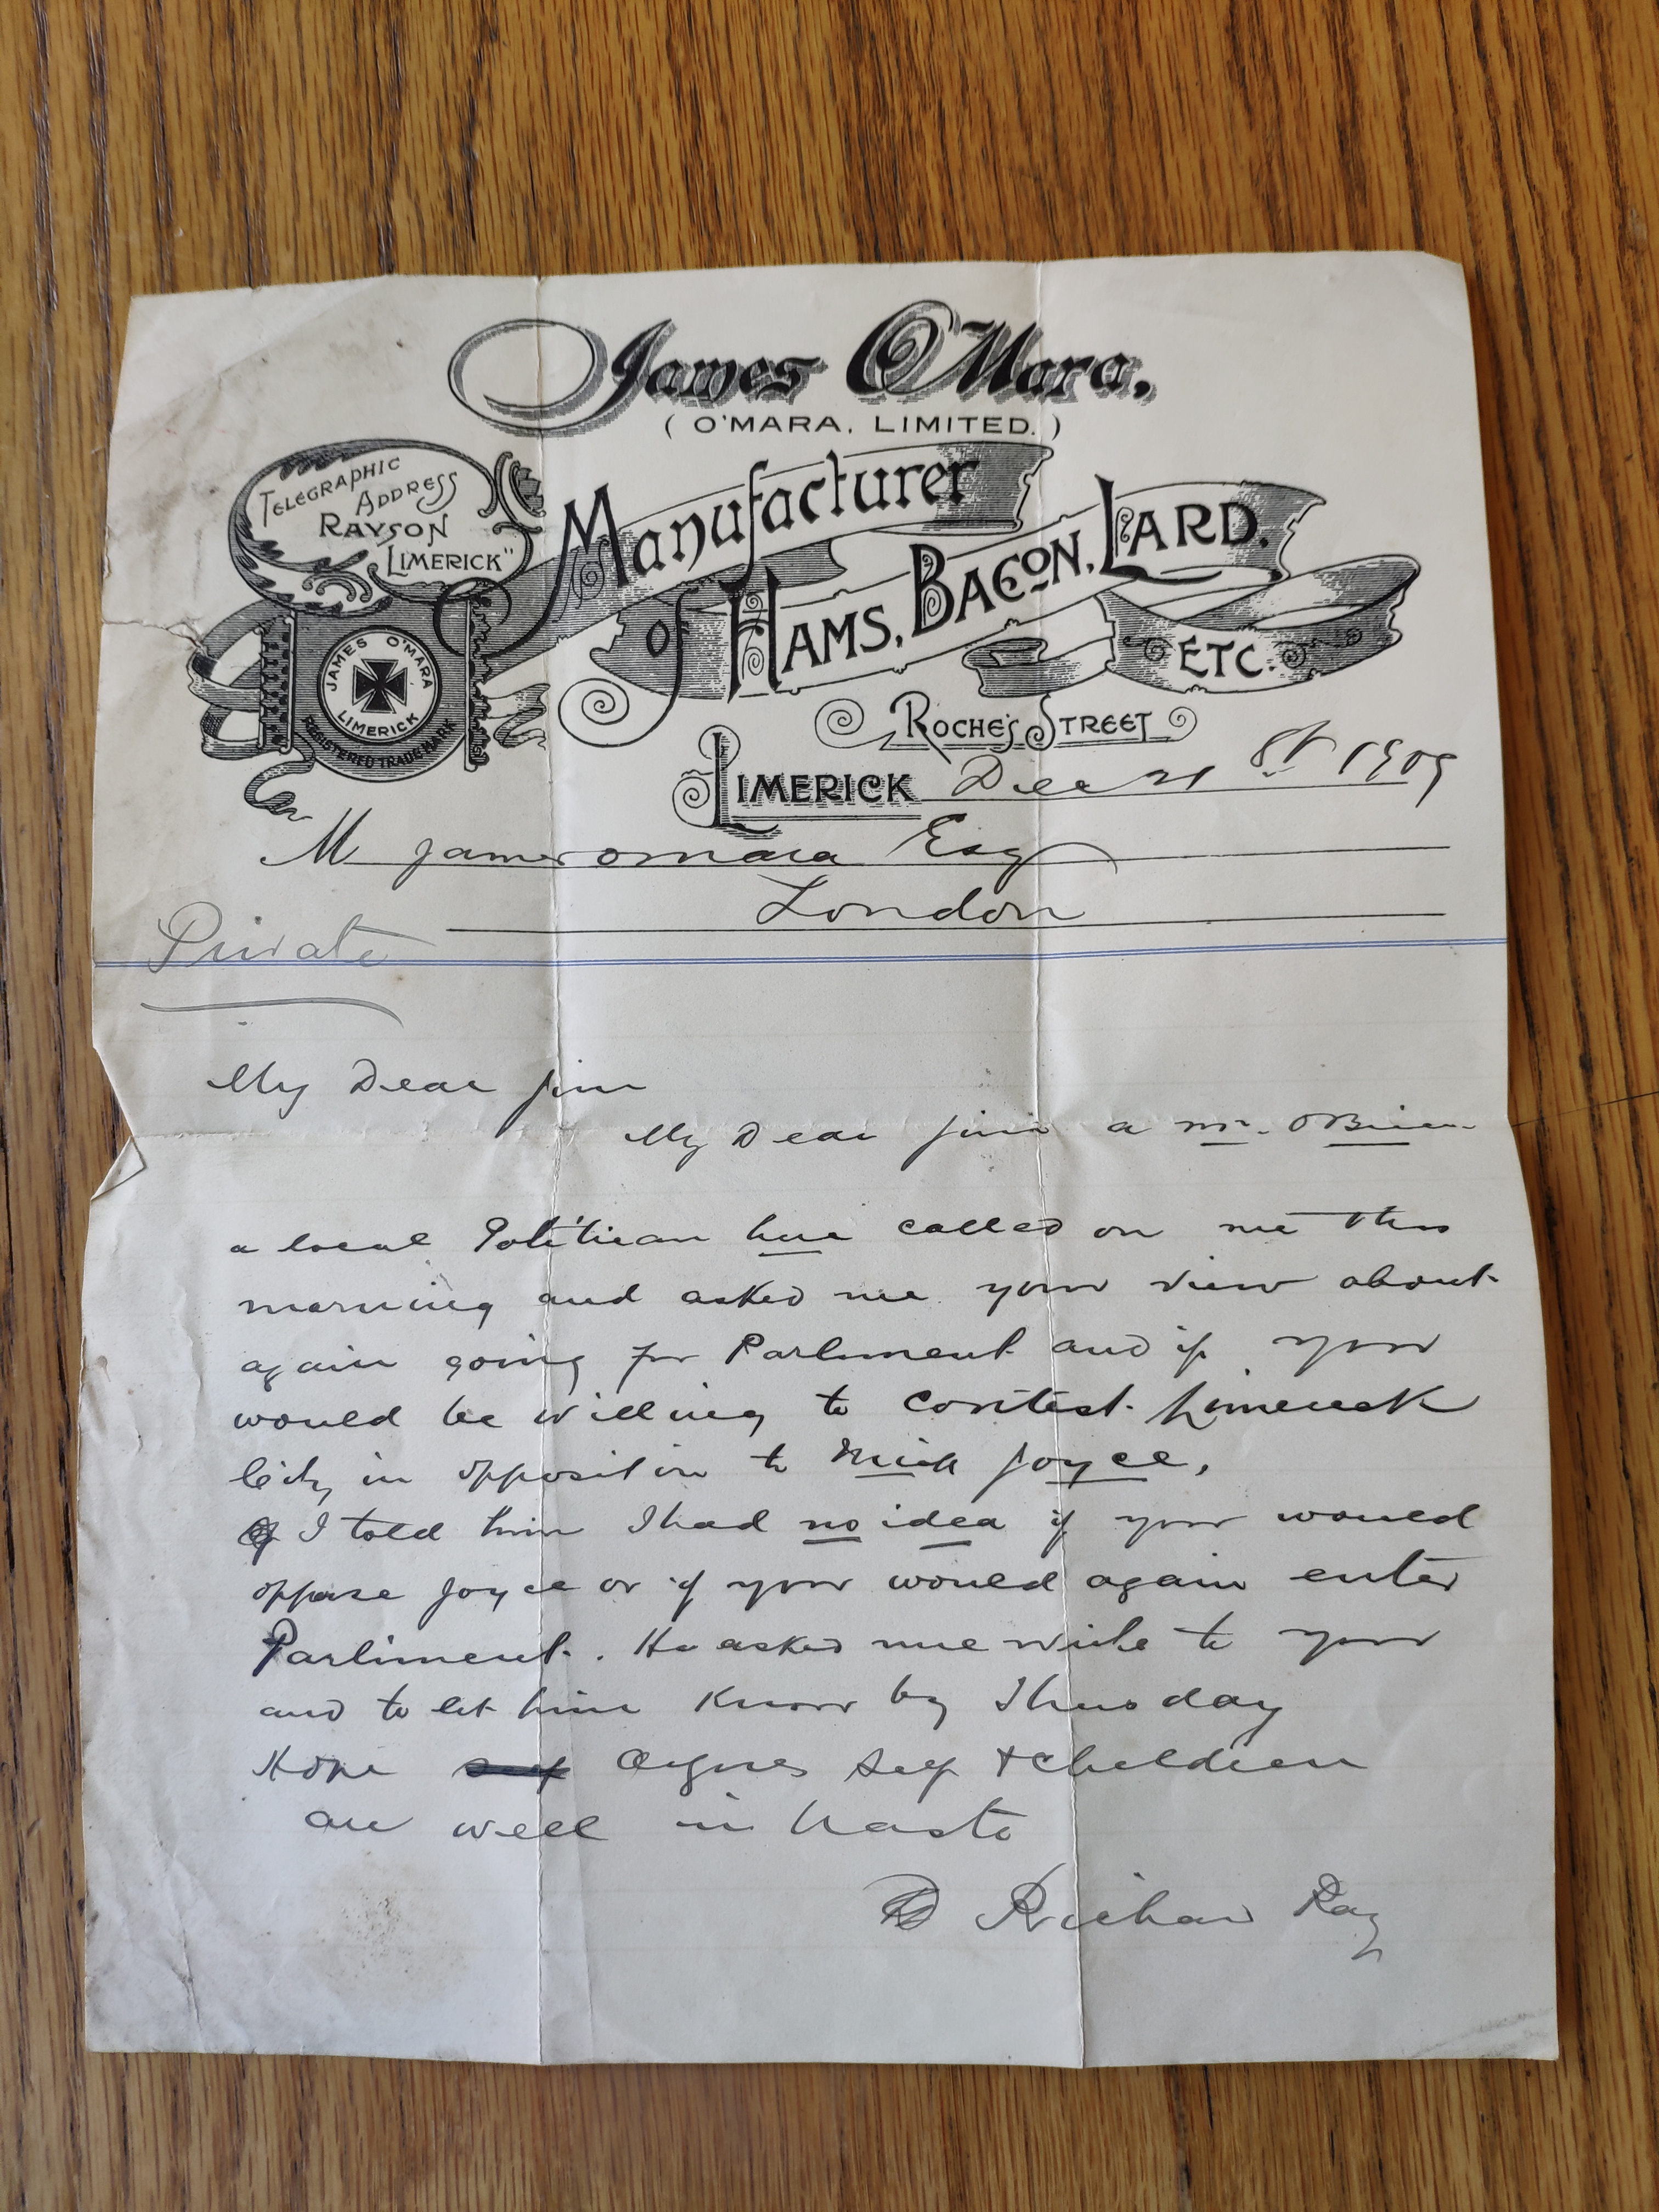 James O'Mara,
( O'MARA, LIMITED. )
TELEGRAPHIC
ADDRESS
RAYSON
LIMERICK"
Manufacturer
of HAMS, BACON, LARD,
ETC.
JAMES O'MARA
LIMERICK
REGISTERED TRADE MARK
ROCHE'S STREET
LIMERICK Dec 21 st 1909
M James omara Esq
London
Private
My Dear Jim
My Dear Jim a mr. OBrien
a local Politician here called on me this
morning and asked me your view about
again going for Parliment and if you
would be willing to contest Limerick
City in opposition to Mick Joyce,
I told him I had no idea if you would
oppose Joyce or if you would again enter
Parliment. He asked me write to you
and to let him know by Thusday
Hope Agnes self + children
are well in haste